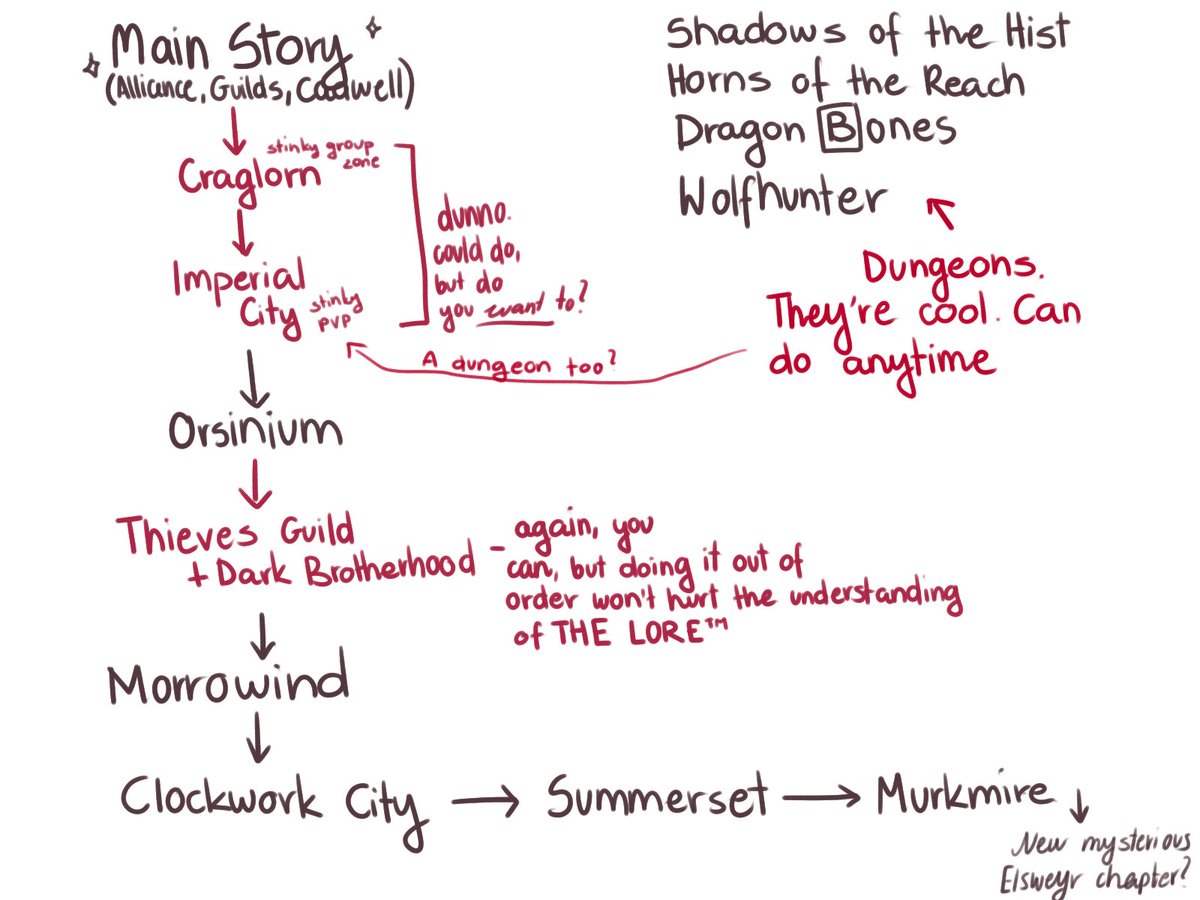 Main Story
(Alliance, Guilds, Cadwell)
Craglorn
stinky group
zone
Imperial
City
stinky
PVP
dunno.
could do,
but do
you want to?
Shadows of the Hist
Horns of the Reach
Dragon Bones
Wolfhunter
Dungeons.
They're cool. Can
do anytime
A dungeon too?
Orsinium
Thieves Guild
+ Dark Brotherhood
- again, you
can, but doing it out of
order won't hurt the understanding
of THE LORE™
Morrowind
Clockwork City → Summerset → Murkmire
New mysterious
Elsweyr chapter?